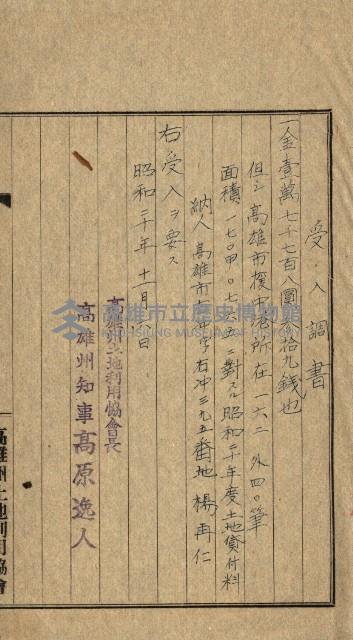 受入調書
一金壹萬七千七百八圓 拾九錢也
但シ高雄市援中港所在一六二 外四〇筆
面積一七〇甲〇七 五ニ對スル昭和二十年度土地貸付料
納人 高雄市右冲字右冲三九五番地 楊再仁
右受入ヲ要ス
昭和二十年十一月 日
高雄州土地利用協會長
高雄州知事高原逸人
高雄州土地利用協會
高雄市立歷史博物館
KAOHSIUNG MUSEUM OF HISTORY